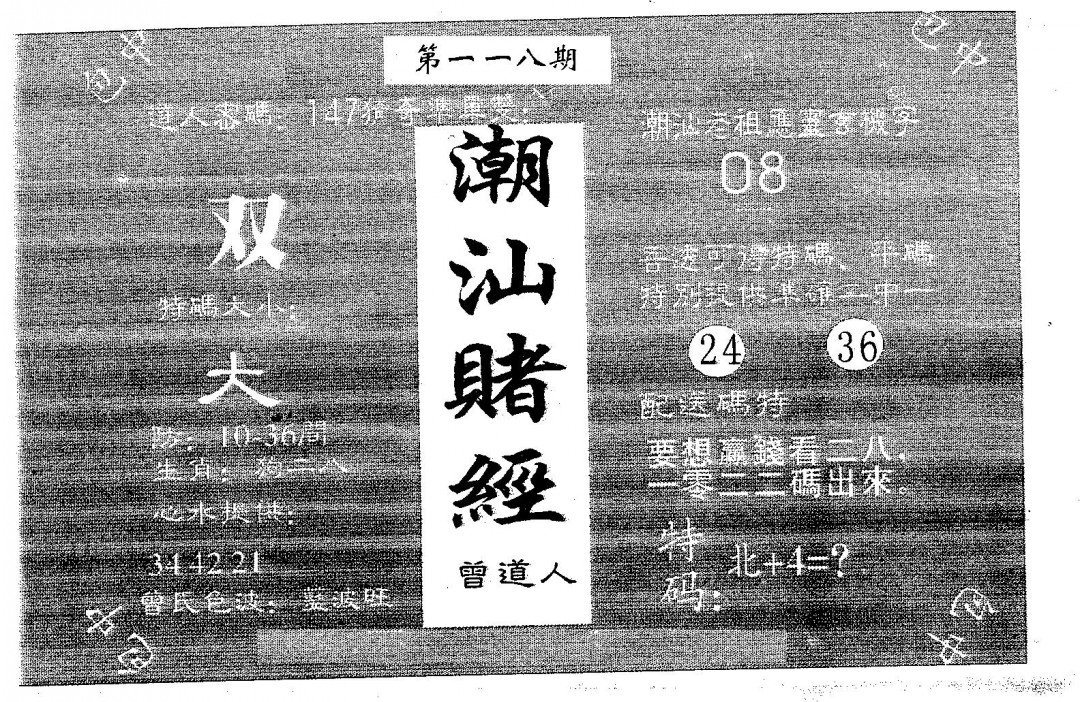 第一一八期
道人密碼：147
双
特碼大小：
大
防：10-36間
生肖：狗二八
心水提供：
34 42 21
曾氏色波：藍波旺
潮汕賭經
曾道人
潮汕老祖應靈會機字
08
特碼、平碼
特別提供準確二中一
24 36
配送碼特
要想贏錢看二八.
一零二二碼出來.
特码：北+4=?